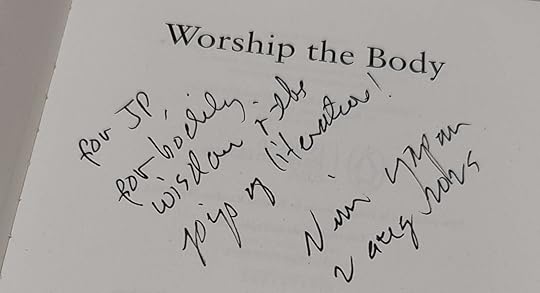 Worship the Body
for JP,
for bodily
wisdom + the
joys of literature!
2 Aug 2025